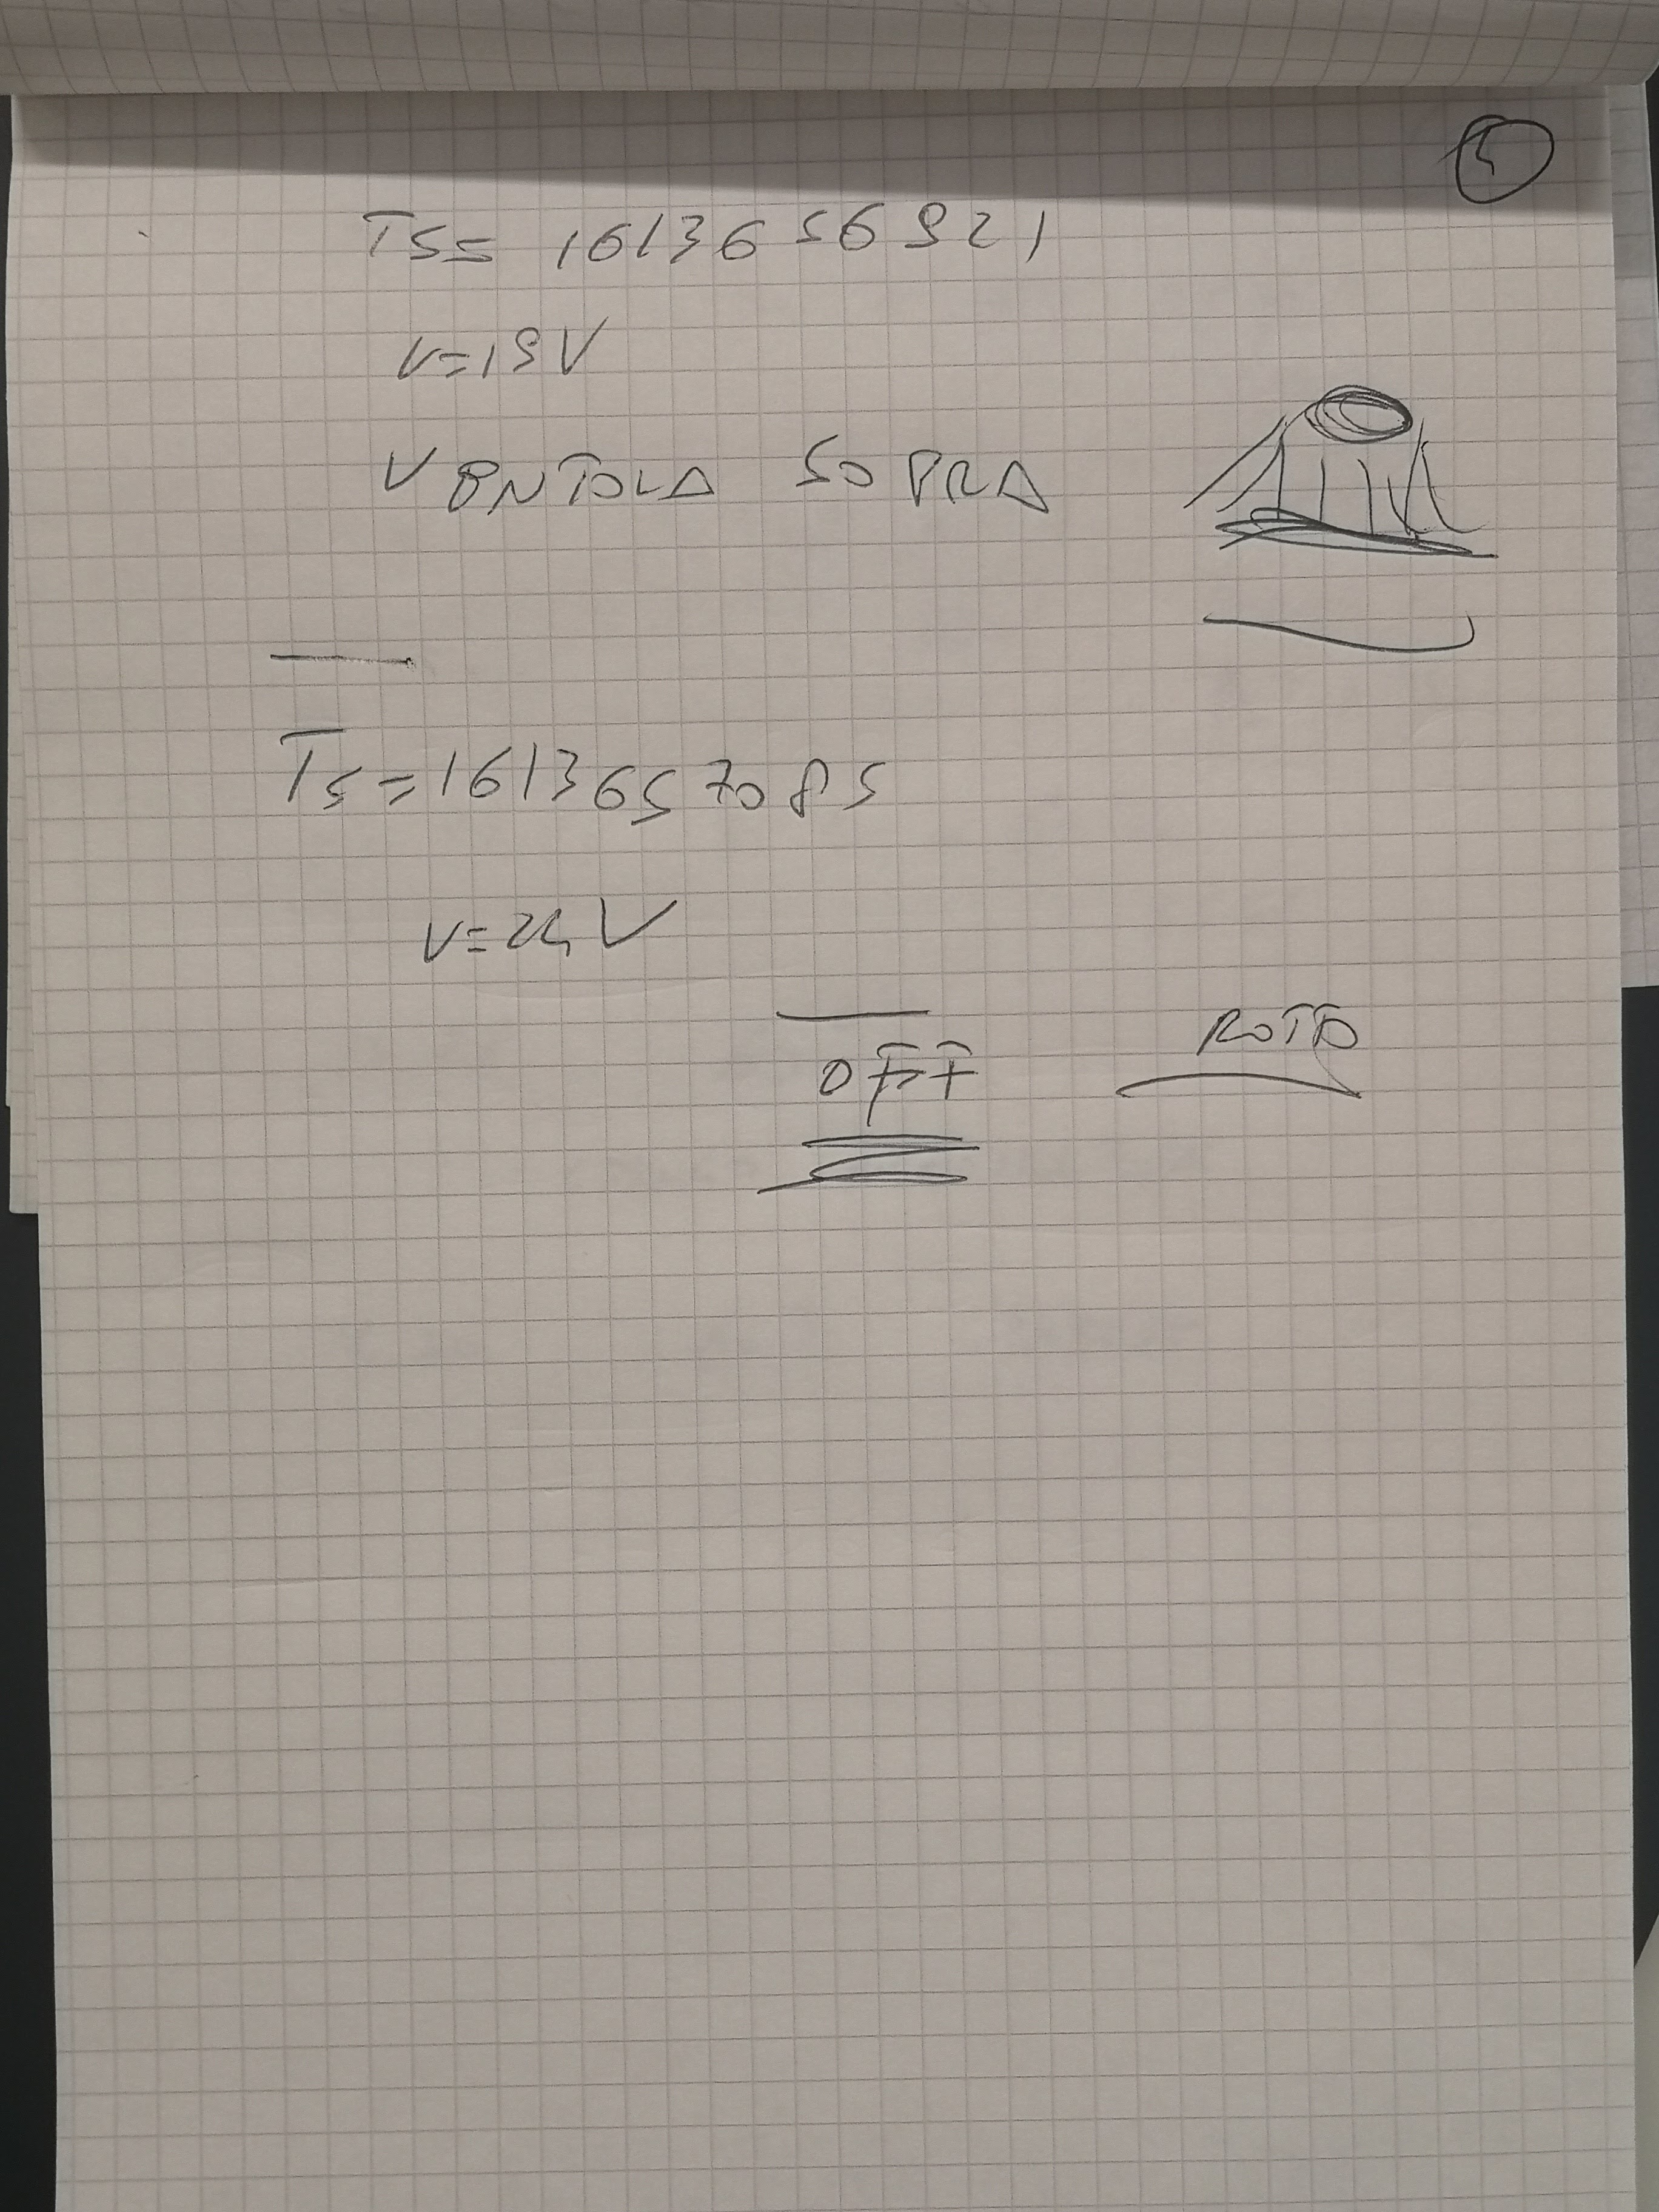 5
TS= 1613656921
V=19V
VENTOLA SOPRA
TS=1613657085
V=24V
OFF
ROTTO